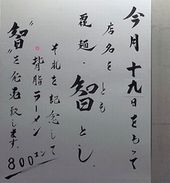 今月十九日をもって
店名を
麺麺・智とし、
とも
それを記念して
背脂ラーメン
"智"を追加致します。
800エン